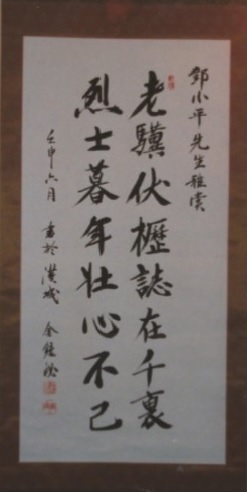 鄧小平 先生雅賞
老驥伏櫪誌在千裏
烈士暮年壯心不已
壬申六月 書於漢城 金鍾泌